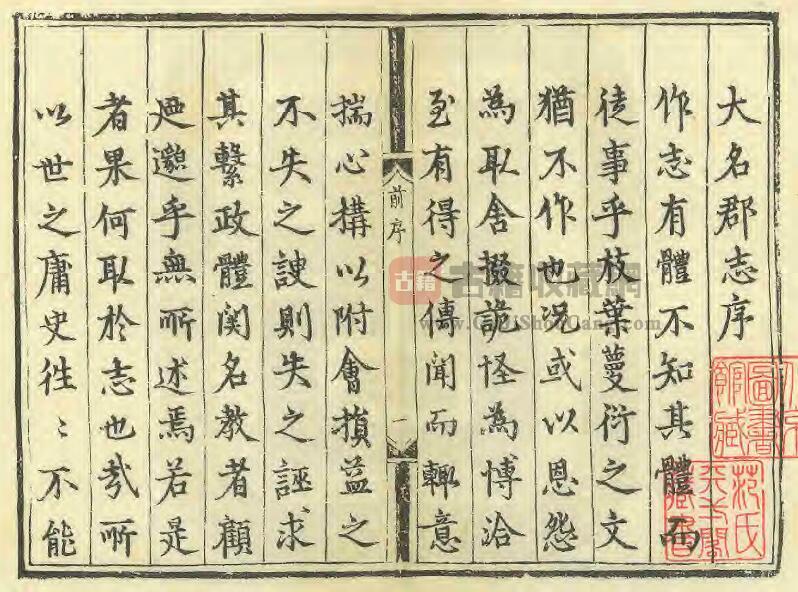 大名郡志序
作志有體不知其體而
徒事乎枝葉蔓衍之文
猶不作也况或以恩怨
為取舍掇詭怪為博洽
至有得之傳聞而輒意
前序
一
揣心搆以附會損益之
不失之諛則失之誣求
其繫政體関名教者顧
廼邈乎無所述焉若是
者果何取於志也哉所
以世之庸史徃〻不能
圖書
館藏
范氏
天一閣
藏書
古籍
古籍收藏網
www.GuJiShouCang.com